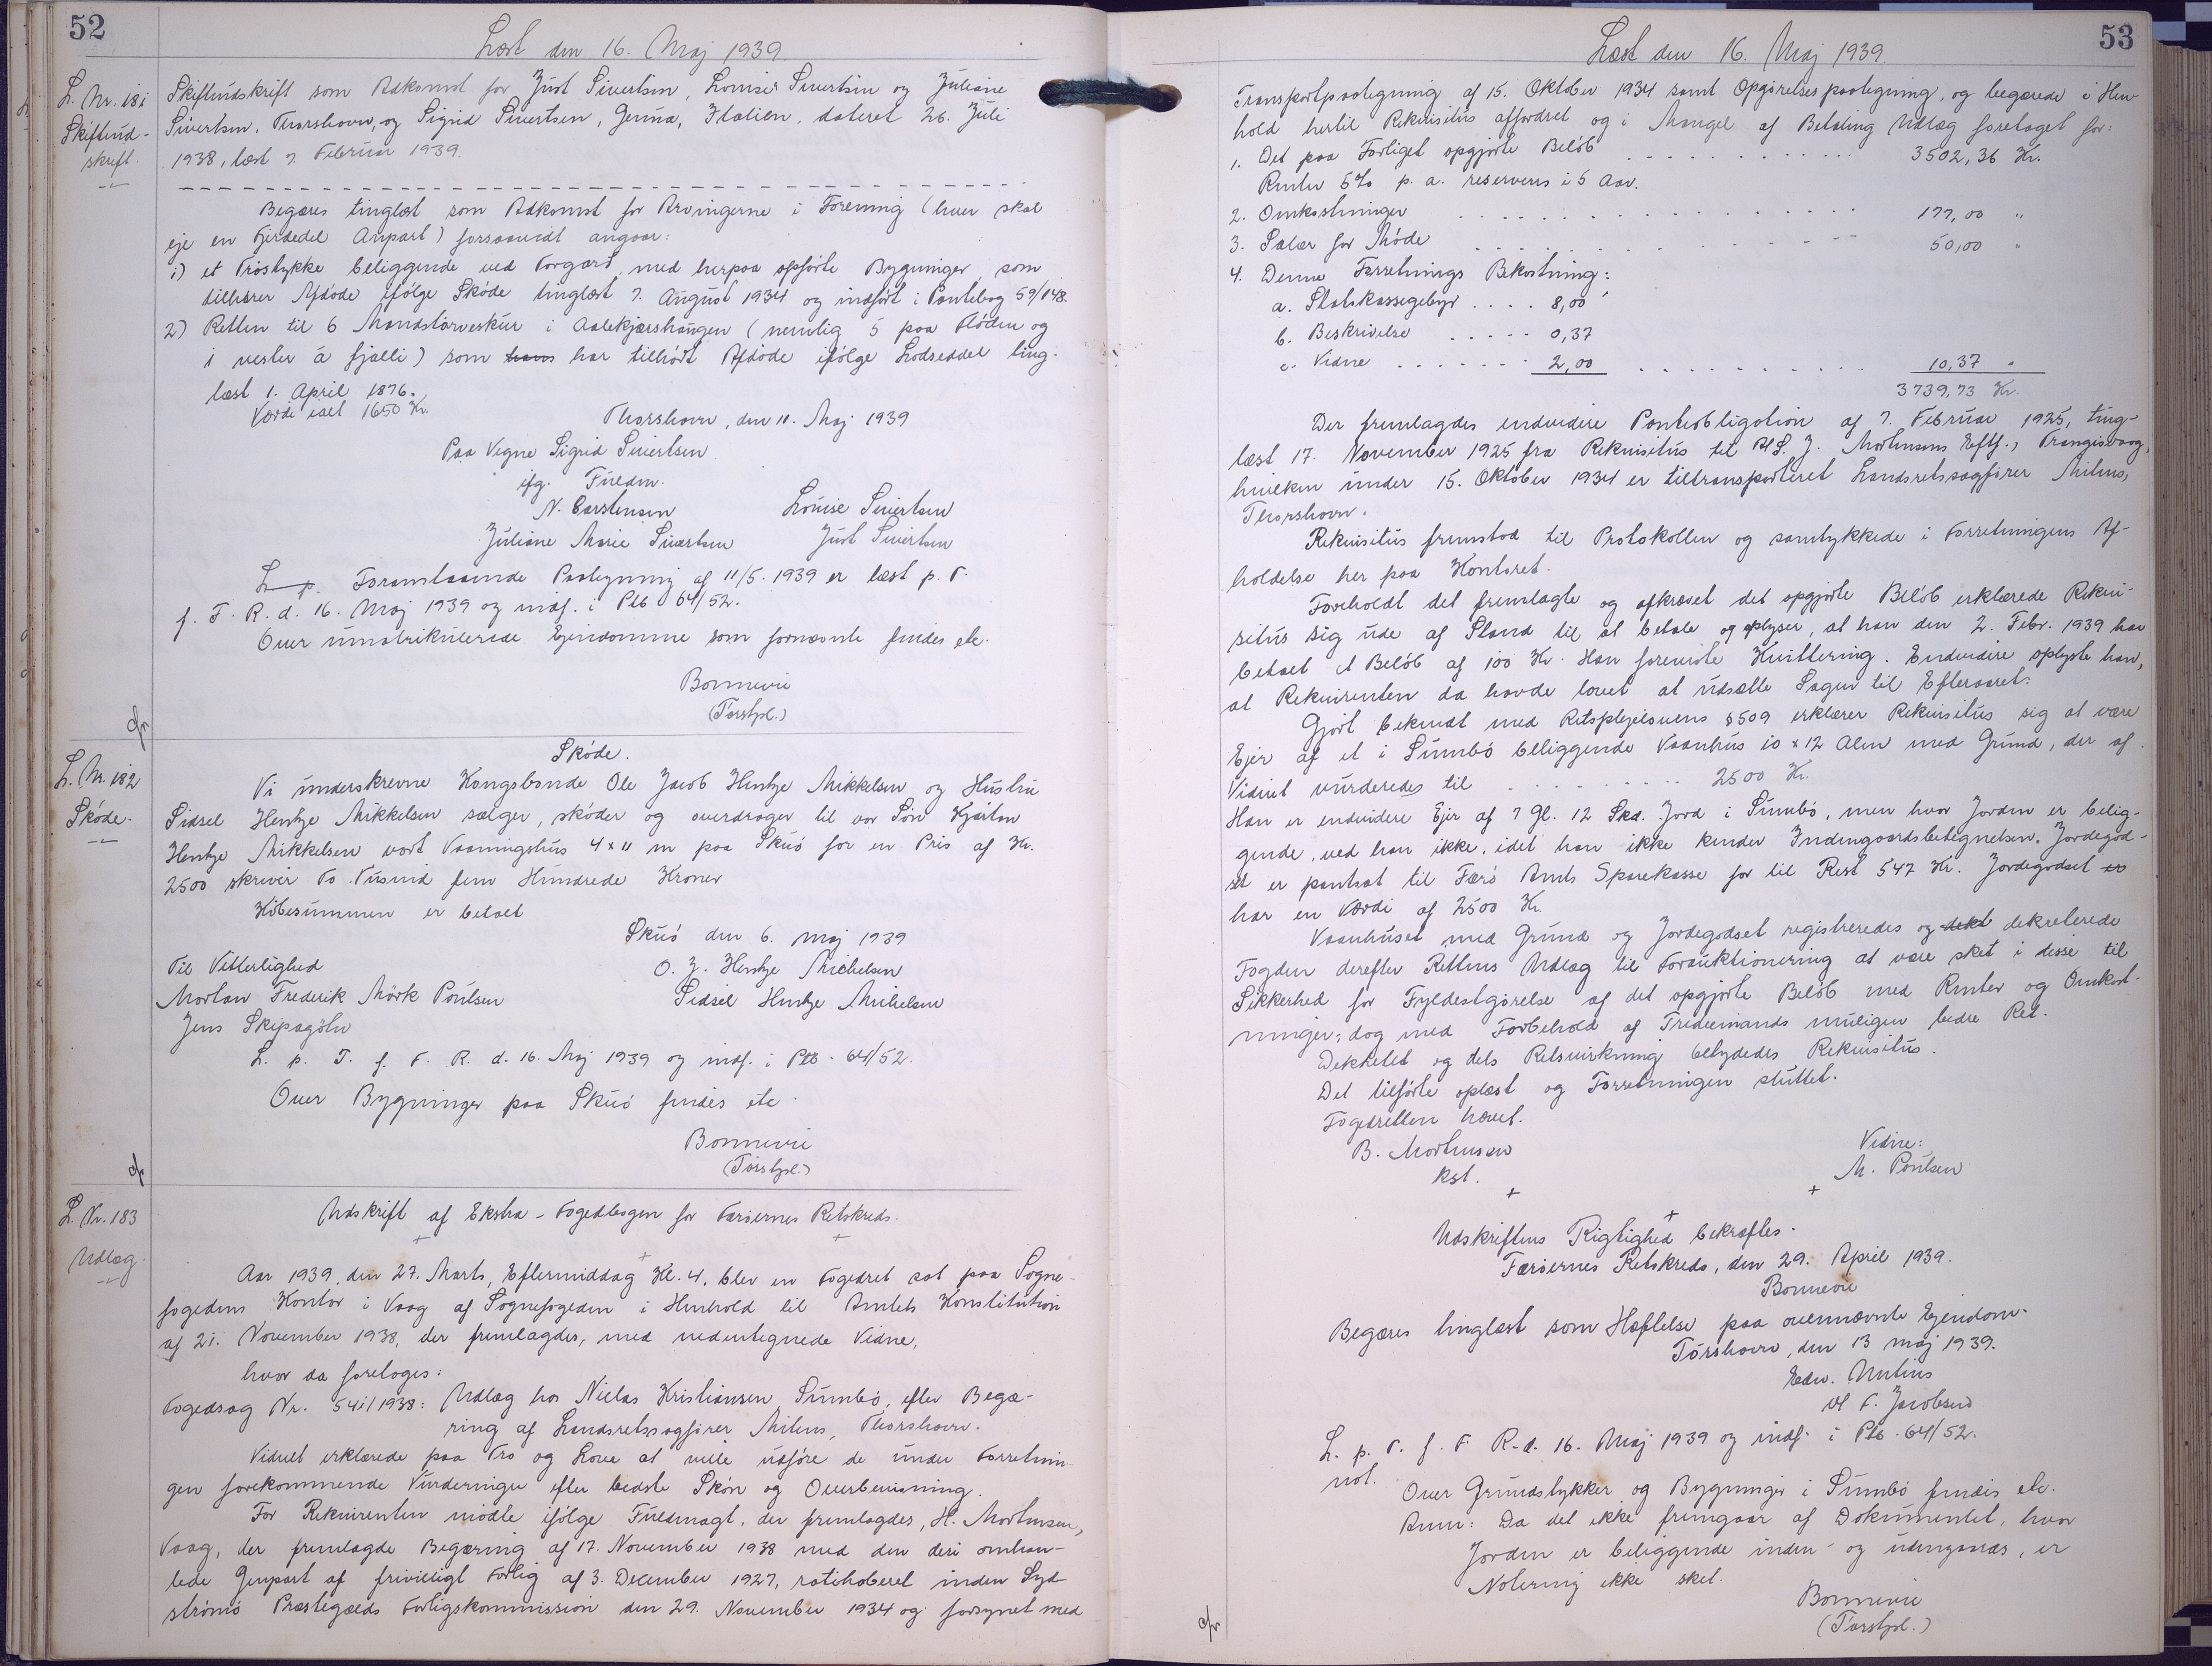 52
Læst den 16. Maj 1939.
L. Nr. 181
Skiftud-
skrift.
Skifteudskrift som Adkomst for Just Sivertsen, Louise Sivertsen og Juliane
Sivertsen, Thorshavn, og Sigrid Sivertsen, Genua, Italien, dateret 26. Juli
1938, læst 7. Februar 1939.
Begæres tinglæst som Adkomst for Arvingerne i Forening (hver skal
eje en Fjerdedel Anpart) forsaavidt angaar:
1) et Tröstykke beliggende ved Torgard med herpaa opførte Bygninger, som
tilhører Afdøde ifølge Skøde tinglæst 7. August 1934 og indført i Pantebog 59/148.
2) Retten til 6 Mandstørveskur i Aalekjærshaugen (nemlig 5 paa Flóðen og
1 vester á fjalli) som hans har tilhørt Afdøde ifølge Lodseddel ting-
læst 1. April 1876.
Værdi ialt 1650 Kr.
Thorshavn, den 11. Maj 1939
Paa Vegne Sigrid Sivertsen
ifg. Fuldm.
N. Carstensen Louise Sivertsen
Juliane Marie Sivertsen Just Sivertsen
L. p. Foranstaaende Paategning af 11/5. 1939 er læst p. T.
f. F. R. d. 16. Maj 1939 og indf. i Ptb 64/52.
Over umatrikulerede Ejendomme som fornævnte findes etc.
Bonnevie
(Torstpl.)
L. Nr. 182
Skøde.
Skøde.
Vi underskrevne Kongsbonde Ole Jacob Hentze Mikkelsen og Hustru
Sidsel Hentze Mikkelsen sælger, skøder og overdrager til vor Søn Kjartan
Hentze Mikkelsen vort Vaaningshus 4 x 11 m paa Skuó for en Pris af Kr.
2500 skriver To Tusind fem Hundrede Kroner
Købesummen er betalt
Skuó den 6. maj 1939
Til Vitterlighed O. J. Hentze Michelsen
Mortan Frederik Mørk Poulsen Sidsel Hentze Michelsen
Jens Skipagøtu
L. p. T. f. F. R. d. 16. Maj 1939 og indf. i Ptb. 64/52.
Over Bygninger paa Skuó findes etc.
Bonnevie
(Torstpl.)
L. Nr. 183
Udlæg.
Udskrift af Ekstra-Fogedbogen for Færøernes Retskreds.
Aar 1939, den 27. Marts, Eftermiddag Kl. 4, blev en Fogedret sat paa Sogne-
fogedens Kontor i Vaag af Sognefogeden i Henhold til Amtets Konstitution
af 21. November 1938, der fremlagdes, med nedentegnede Vidne,
hvor da foretoges:
Fogedsag Nr. 541/1938: Udlæg hos Niclas Kristiansen Sumbø, efter Begæ-
ring af Landsretssagfører Mitens, Thorshavn.
Vidnet erklærede paa Tro og Love at ville udføre de under Forretnin-
gen forekommende Vurderinger efter bedste Skøn og Overbevisning.
For Rekvirenten mødte ifølge Fuldmagt, der fremlagdes, H. Mortensen,
Vaag, der fremlagde Begæring af 17. November 1938 med den deri omhan-
lede Genpart af frivilligt Forlig af 3. December 1927, ratihaberet inden Syd-
strømø Præstegælds Forligskommission den 29. November 1934 og forsynet med
53
Læst den 16. Maj 1939.
Transportpaategning af 15. Oktober 1934 samt Opgørelsespaategning, og begærede i Hen-
hold hertil Rekvisitus affordret og i Mangel af Betaling Udlæg foretaget for:
1. Det paa Forliget opgjorte Beløb . . . 3502,36 Kr.
Renter 5% p. a. reserveres i 5 Aar.
2. Omkostninger . . . 177,00 "
3. Salær for Møde . . . 50,00 "
4. Denne Forretnings Bekostning:
a. Statskassegebyr . . . . 8,00
b. Beskrivelse . . . . . 0,37
c. Vidne . . . . . . 2,00 . . . 10,37 "
3739,73 Kr.
Der fremlagdes endvidere Pantobligation af 7. Februar 1925, ting-
læst 17. November 1925 fra Rekvisitus til J. Mortensens Eftf., Trangisvaag,
hvilken under 15. Oktober 1934 er tiltransporteret Landsretssagfører Mitens,
Thorshavn.
Rekvisitus fremstod til Protokollen og samtykkede i Forretningens Af-
holdelse her paa Kontoret.
Foreholdt det fremlagte og afkrævet det opgjorte Beløb erklærede Rekvi-
situs sig ude af Stand til at betale og oplyser, at han den 2. Febr. 1939 har
betalt et Beløb af 100 Kr. Han foreviste Kvittering. Endvidere oplyste han,
at Rekvirenten da havde lovet at udsætte Sagen til Efteraaret.
Gjort bekendt med Retsplejelovens § 509 erklærer Rekvisitus sig at være
Ejer af et i Sumbø beliggende Vaanhus 10 x 12 Alen med Grund, der af
Vidnet vurderedes til . . . 2500 Kr.
Han er endvidere Ejer af 7 Gl. 12 Skd. Jord i Sumbø, men hvor Jorden er belig-
gende, ved han ikke, idet han ikke kender Indengaardsbetegnelsen. Jordegod-
set er pantsat til Færø Amts Sparekasse for til Rest 547 Kr. Jordegodset er
har en Værdi af 2500 Kr.
Vaanhuset med Grund og Jordegodset registreredes og dekt dekreterede
Fogden derefter Rettens Udlæg til Forauktionering at være sket i disse til
Sikkerhed for Fyldestgørelse af det opgjorte Beløb med Renter og Omkost-
ninger; dog med Forbehold af Trediemands muligen bedre Ret.
Dekretet og dets Retsvirkning betydedes Rekvisitus.
Det tilførte oplæst og Forretningen sluttet.
Fogedretten hævet.
B. Mortensen Vidne:
kst. M. Poulsen
Udskriftens Rigtighed bekræftes.
Færøernes Retskreds, den 29. April 1939.
Bonnevie
Begæres tinglæst som Hæftelse paa ovennævnte Ejendom.
Tórshavn, den 13 maj 1939.
Edw. Mitens
v/ F. Jacobsen
L. p. T. f. F. R. d. 16. Maj 1939 og indf. i Ptb. 64/52.
not.
Over Grundstykker og Bygninger i Sumbø findes etc.
Anm: Da det ikke fremgaar af Dokumentet, hvor
Jorden er beliggende inden- og udengaards, er
Notering ikke sket.
Bonnevie
(Torstpl.)